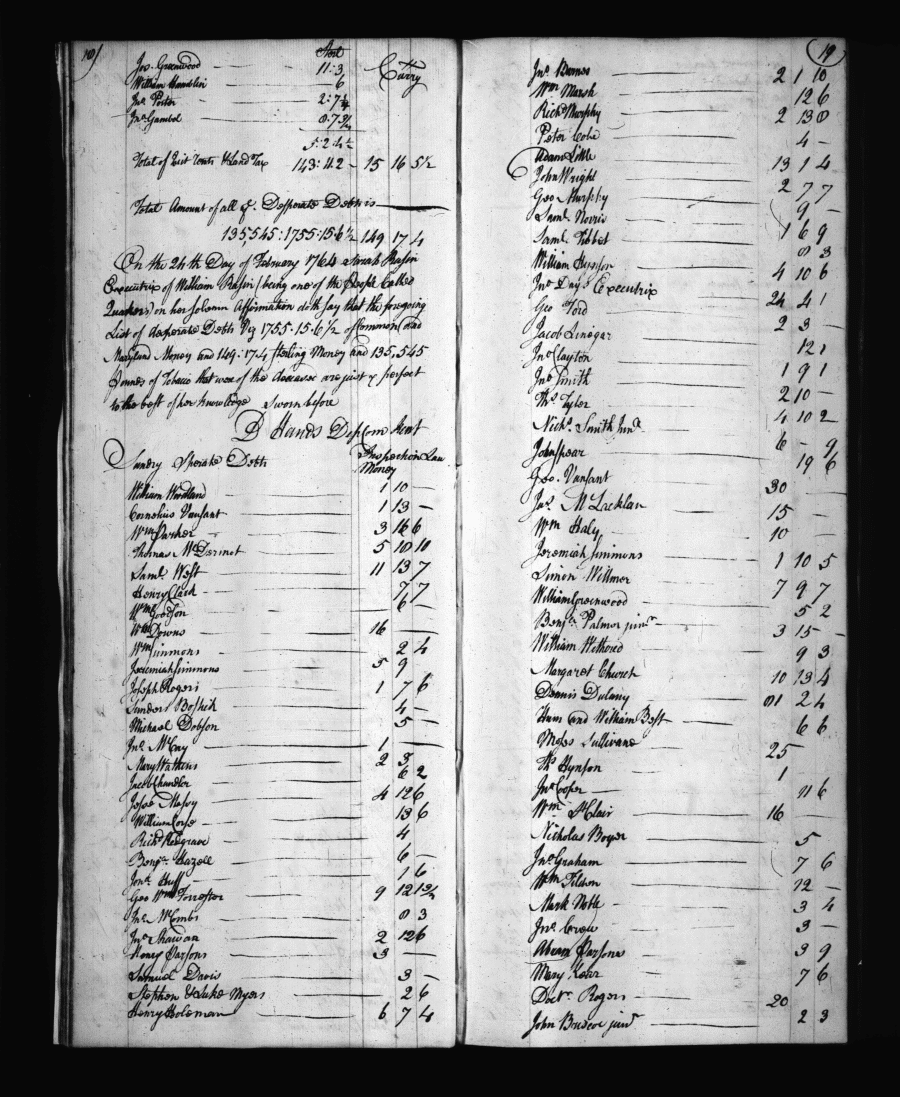 18/
Jos. Greenwood — 11:3 Carry
William Hamblin — 6
Jno. Porter — 2:7¼
Jno. Gambol — 8:7¾
5:2:4½
Total of Quit Rents & Land Tax 143:4 2 — 15 16 5½
Total Amount of all ye. Desperate Debts is —
135,545:1755:15:6½ 149 17 4
On the 24th Day of February 1764 Sarah Rasin
Executrix of William Rasin (being one of the People Called
Quakers) on her Solemn Affirmation doth say that the foregoing
List of desperate Debts Viz 1755.15.6½ of Common
Maryland Money and 149:17:4 Sterling Money and 135,545
Pounds of Tobacco that were of the deceased are just & perfect
to the best of her knowledge Sworn before
D Hands Dep Com Kent
Sundry Sperate Debts Inspection Law Money
William Woodland — 1 10 —
Cornelius Vansant — 1 13 —
Wm. Parker — 3 16 6
Thomas McDermot — 5 10 10
Saml. West — 11 13 7
Henry Clark — 7 7
Wm. Goodson — 6 —
Wm. Downs — 16 —
Wm. Simmons — 2 4
Jeremiah Simmons — 5 9
Joseph Rogers — 1 7 6
Sanders Bostick — 4 —
Michael Dobson — 5 —
Jno. McCay — 1 —
Mary Watkins — 2 3
Jacob Chandler — 6 2
Josoe Massy — 4 12 6
William Corse — 13 6
Richd. Hosgrave — 4
Benjn. Hazell — 6 —
Jont. Huff — 1 6
Geo Wm. Forrester — 9 12 1¾
Jno. McCombs — 8 3
Jno. Shawan — 2 12 6
Henry Parsons — 3 —
Samuel Davis — 3 —
Stephen & Luke Myers — 2 6
Henry Coleman — 6 7 4
19
Jno. Barnes — 2 1 10
Wm. Marsh — 12 6
Richd. Murphy — 2 13 8
Peter Cole — 4 —
Adam Little — 13 1 4
John Wright — 2 7 7
Geo Murphy — 9 —
Saml. Norris — 1 6 9
Saml. Tibbet — 8 3
William Hynson — 4 10 6
Jno. Day's Executrix
Geo Ford — 24 4 1
Jacob Linegar — 2 3 —
Jno. Clayton — 12 1
Jno. Smith — 1 9 1
Ths. Tyler — 2 10 —
Nichs. Smith Junr. — 4 10 2
John Spear — 6 — 9
Geo. Vansant — 19 6
Jas. McLacklan — 30 —
Wm. Haly — 15 —
Jeremiah Simmons — 10 —
Simon Willmer — 1 10 5
William Greenwood — 7 9 7
Benjn. Palmer junr — 5 2
William Withered — 3 15 —
Margaret Church — 9 3
Dennis Dulany — 10 13 4
Hum and William Best — 81 2 4
Moses Sullivane — 6 6
Ths. Hynson — 25
Jno. Cooper — 1
Wm. St Clair — 11 6
Nicholas Boyer — 16 —
Jno. Graham — 5
Wm. Tilden — 7 6
Mark Noble — 12 —
Jno. Crow — 3 4
Abram Parsons — 3 —
Mary Kehr — 3 9
Doctr. Rogers — 7 6
John Briscoe junr — 20
2 3